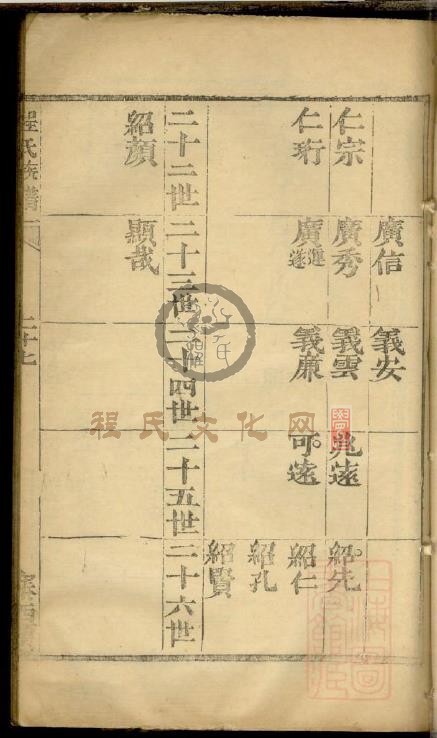 廣信 義安
仁宗 廣秀 義雲 兆遠 紹先
仁珩 廣運遂 義廉 可遠 紹仁
紹孔
紹賢
二十二世 二十三世 二十四世 二十五世 二十六世
紹顏 顯哉
程氏族譜
二十七
程氏文化网